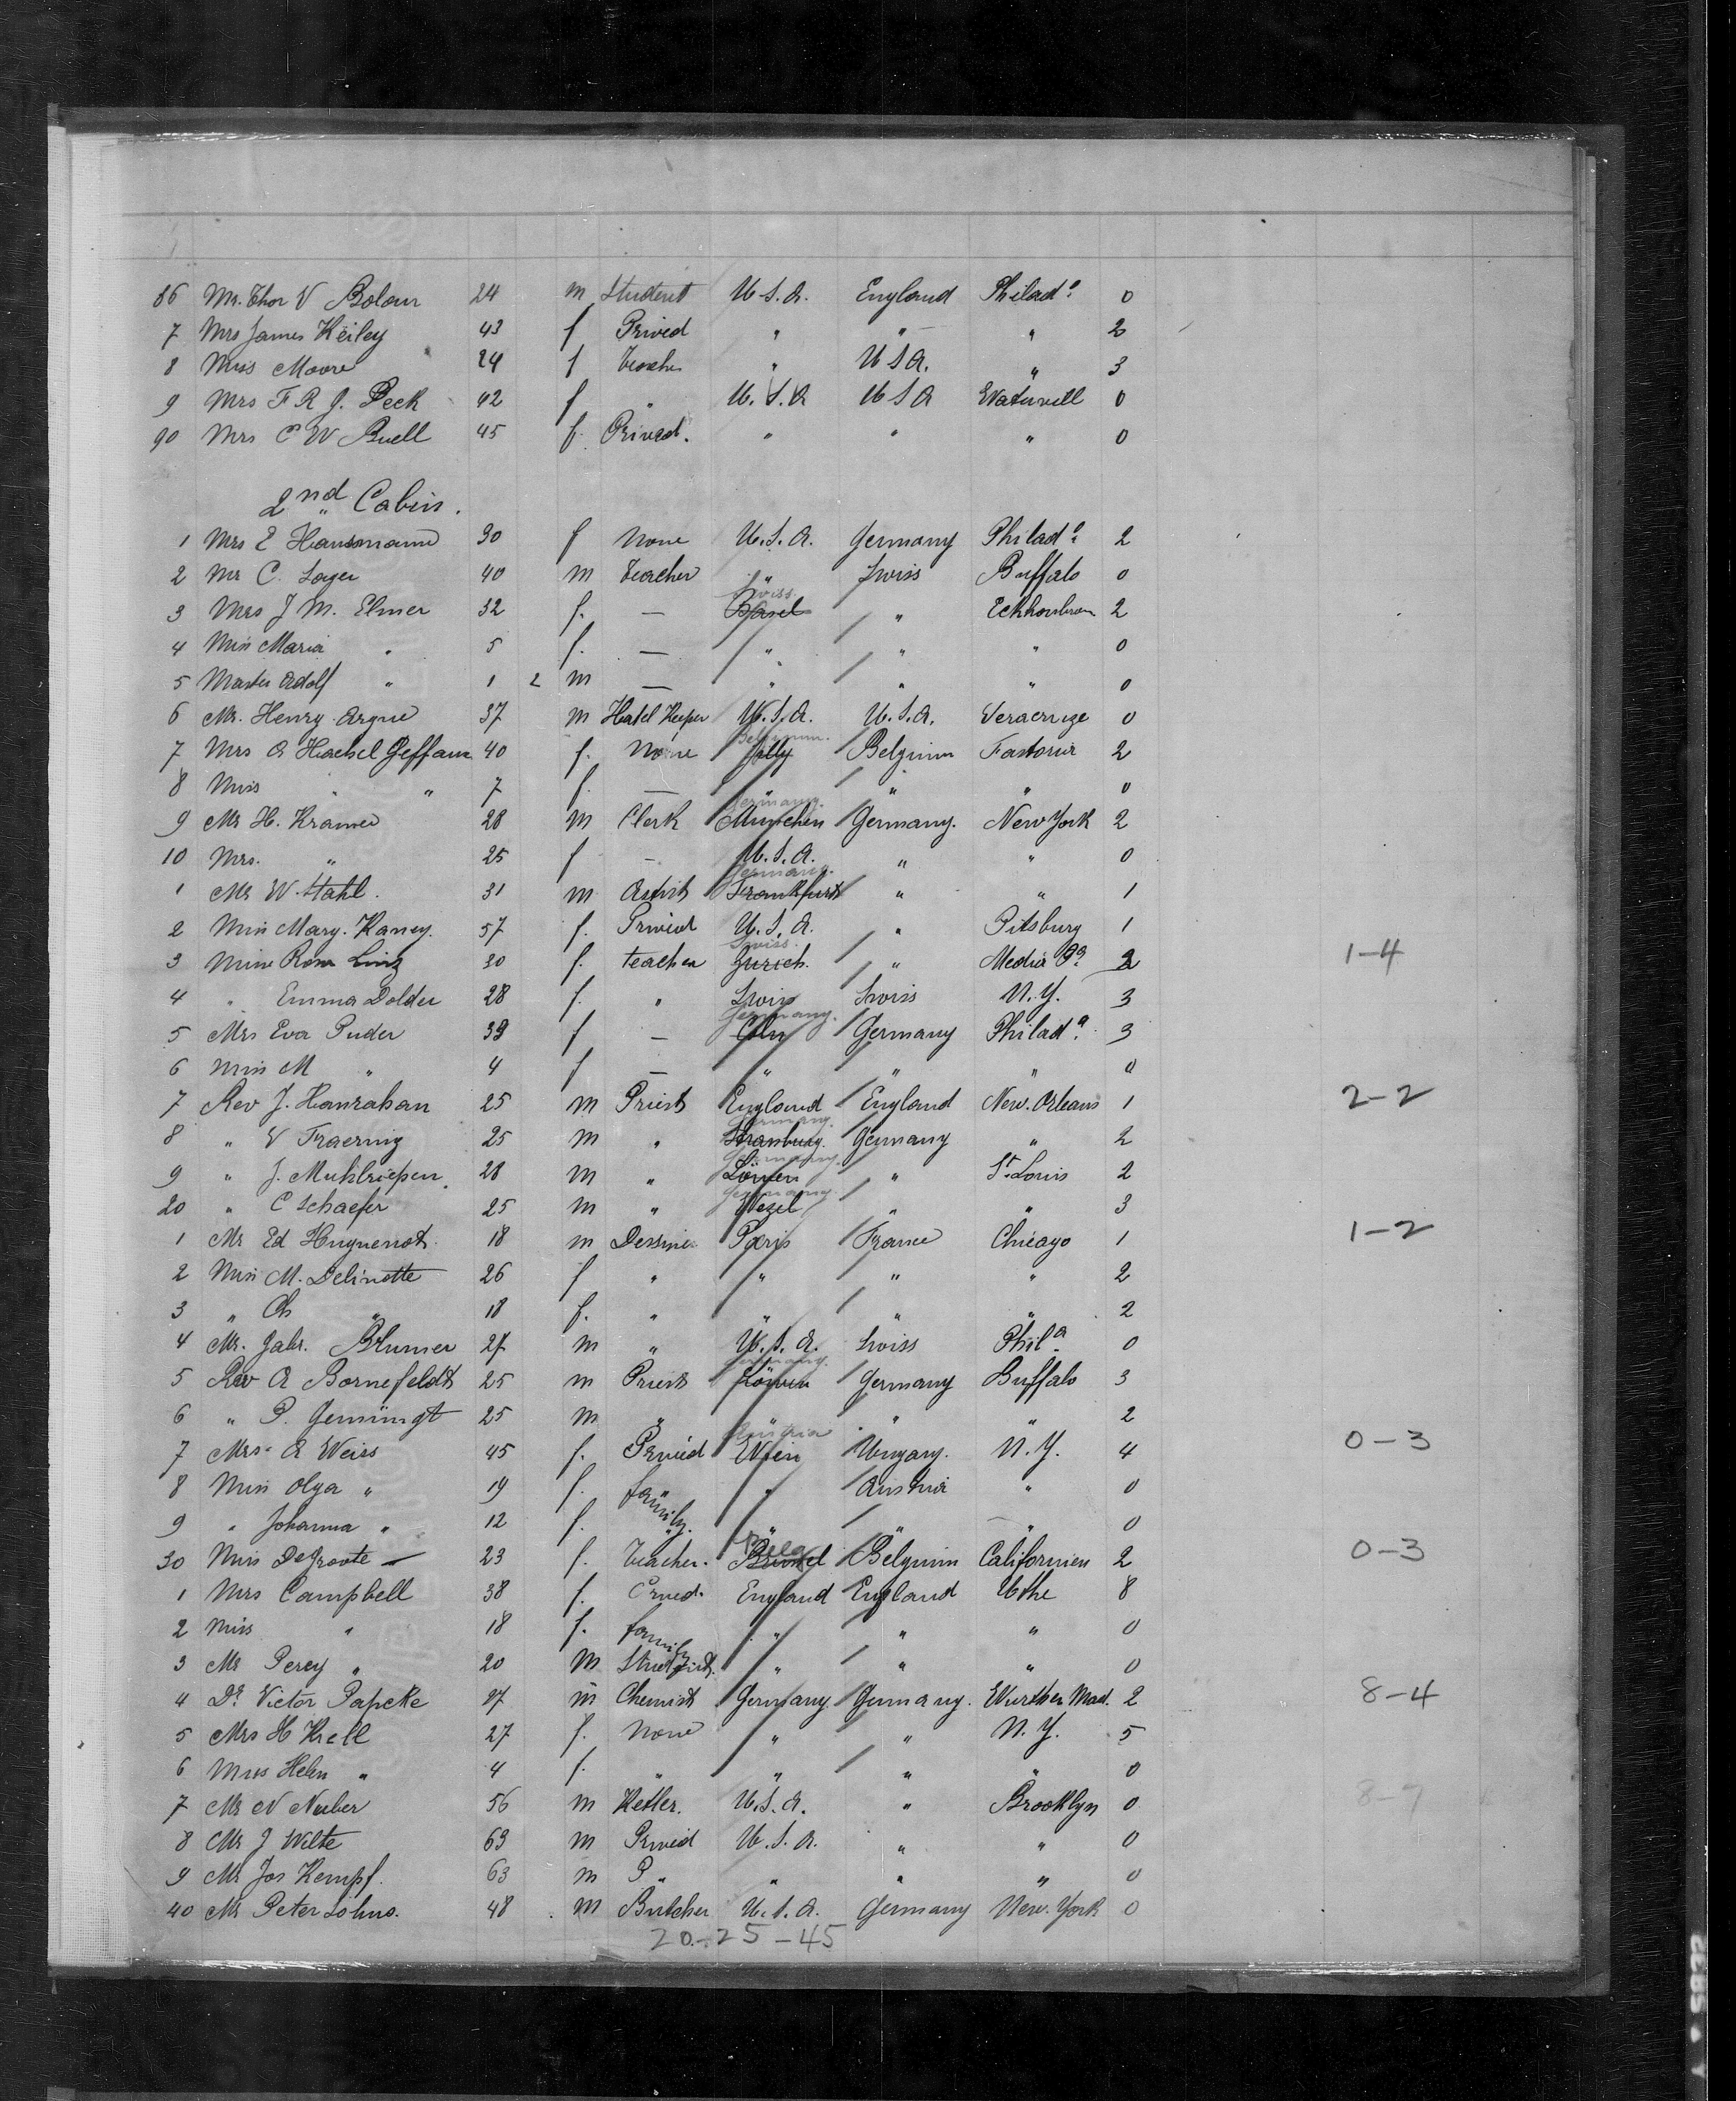 86 Mr. Thor V Bolan 24 m Student U.S.A. England Philad a 0
7 Mrs James Keiley 43 f Prived " " " 2
8 Miss Moore 24 f Teacher " U S A. " 3
9 Mrs F R J. Peck 42 f " U.S.A U S A 0
90 Mrs C W Buell 45 f. Prived. " " " 0
2nd Cabin.
1 Mrs E Hausmann 30 f None U.S.A. Germany Philad a 2
2 Mr C. Loger 40 m Teacher " Swiss Buffalo 0
3 Mrs J M. Elmer 32 f. — Basel Swiss " 2
4 Miss Maria " 5 f. — " " " 0
5 Master Adolf " 1 2 m — " " " 0
6 Mr. Henry Argue 37 m Hotel Keeper U.S.A. U.S.A. 0
7 Mrs A Haehel Geffaux 40 f. None Jolly Belgium. Belgium Fastoria 2
8 Miss " " 7 f. — " " " 0
9 Mr H. Kramer 28 m Clerk München Germany. Germany. New York 2
10 Mrs. " 25 f — U.S.A. " " 0
1 Mr W. Stahl. 31 m Artist Frankfurt Germany. " " 1
2 Miss Mary. Kaney. 57 f. Prived U.S.A. " Pitsburg 1
3 Miss Rosa Linz 30 f. teacher Zurich. Swiss. " Media Pa 2
4 " Emma Dolder 28 f. " Swiss Swiss N.Y. 3
5 Mrs Eva Puder 39 f — Coln Germany. Germany Philad a 3
6 Miss M " 4 f — " " " 0
7 Rev J. Hanrahan 25 m Priest England England New. Orleans 1
8 " V Traering 25 m " Strasburg. Germany. Germany " 2
9 " J. Muhlsiepen. 28 m " Löwen Germany. " St. Louis 2
20 " C Schaefer 25 m " Wezel Germany " " 3
1 Mr Ed Huguenot 18 m Dessine Paris France Chicago 1
2 Miss M. Delinotte 26 f " " " " 2
3 " Ch " 18 f. " " " " 2
4 Mr. Gabr. Blumer 27 m " U.S.A. Swiss Phila 0
5 Rev A Bornefeldt 25 m Priest Löwen Germany. Germany Buffalo 3
6 " P. Gemüngt 25 m " " " " 2
7 Mrs A Weiss 45 f. Prived Wien Austria Ungary. N.Y. 4
8 Miss Olga " 19 f. family " Austria " 0
9 " Johanna " 12 f. " " " " 0
30 Miss DeGroote 23 f. Teacher. Brussel Belg Belgium Californien 2
1 Mrs Campbell 38 f. Prived. England England Uthe 8
2 Miss " 18 f. family " " " 0
3 Mr Percy " 20 m Student. " " " 0
4 Dr Victor Papcke 27 m Chemist Germany Germany. 2
5 Mrs H Krell 27 f. None " " N.Y. 5
6 Miss Helen " 4 f. " " " " 0
7 Mr N Nuber 56 m Keller. U.S.A. " Brooklyn 0
8 Mr J Wilte 63 m Prived U.S.A. " " 0
9 Mr Jos Kempf. 63 m P " " " " 0
40 Mr Peter Lohns. 48 m Butcher U.S.A. Germany New. York 0
20-25-45
1-4
2-2
1-2
0-3
0-3
8-4
8-7